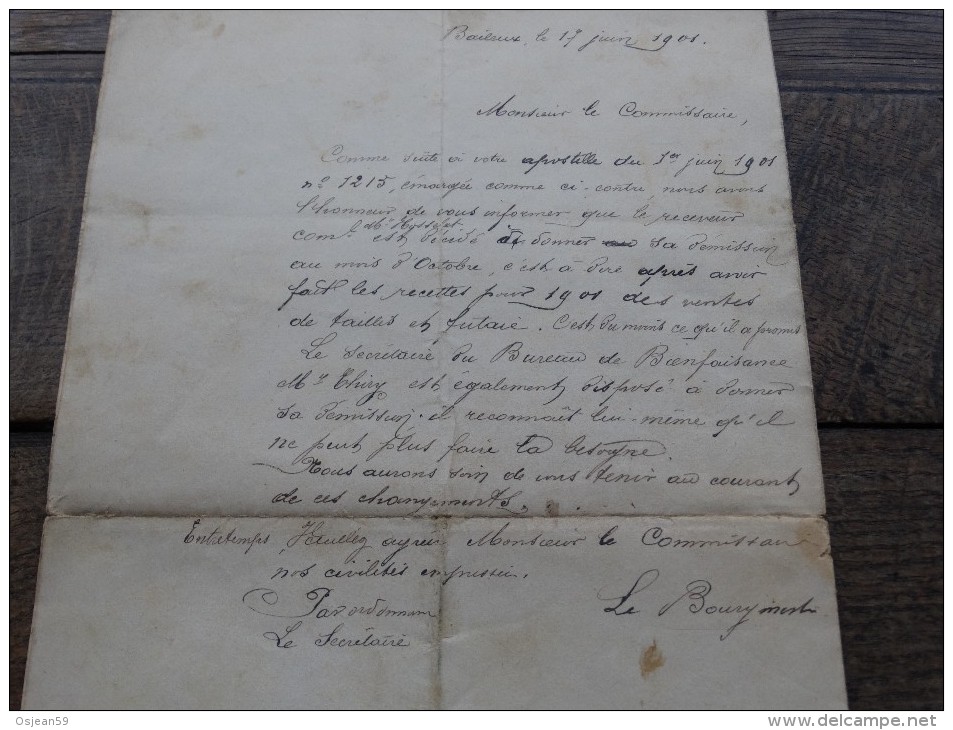 Baileux, le 17 juin 1901.
Monsieur le Commissaire,
Comme suite à votre apostille du 1er juin 1901
n° 1215, émargée comme ci-contre nous avons
l'honneur de vous informer que le receveur
Mr
comal est décidé à donner sa démission
au mois d'Octobre, c'est à dire après avoir
fait les recettes pour 1901 des ventes
de tailles et futaie. C'est du moins ce qu'il a promis
Le Secrétaire du Bureau de Bienfaisance
Mr Thiry est également disposé à donner
sa démission. il reconnaît lui-même qu'il
ne peut plus faire la besogne.
Nous aurons soin de vous tenir au courant
de ces changements.
Entretemps, Veuillez agréer Monsieur le Commissaire
nos civilités empressées.
Par ordonnance
Le Bourgmestre
Le Secrétaire
Osjean59
www.delcampe.net